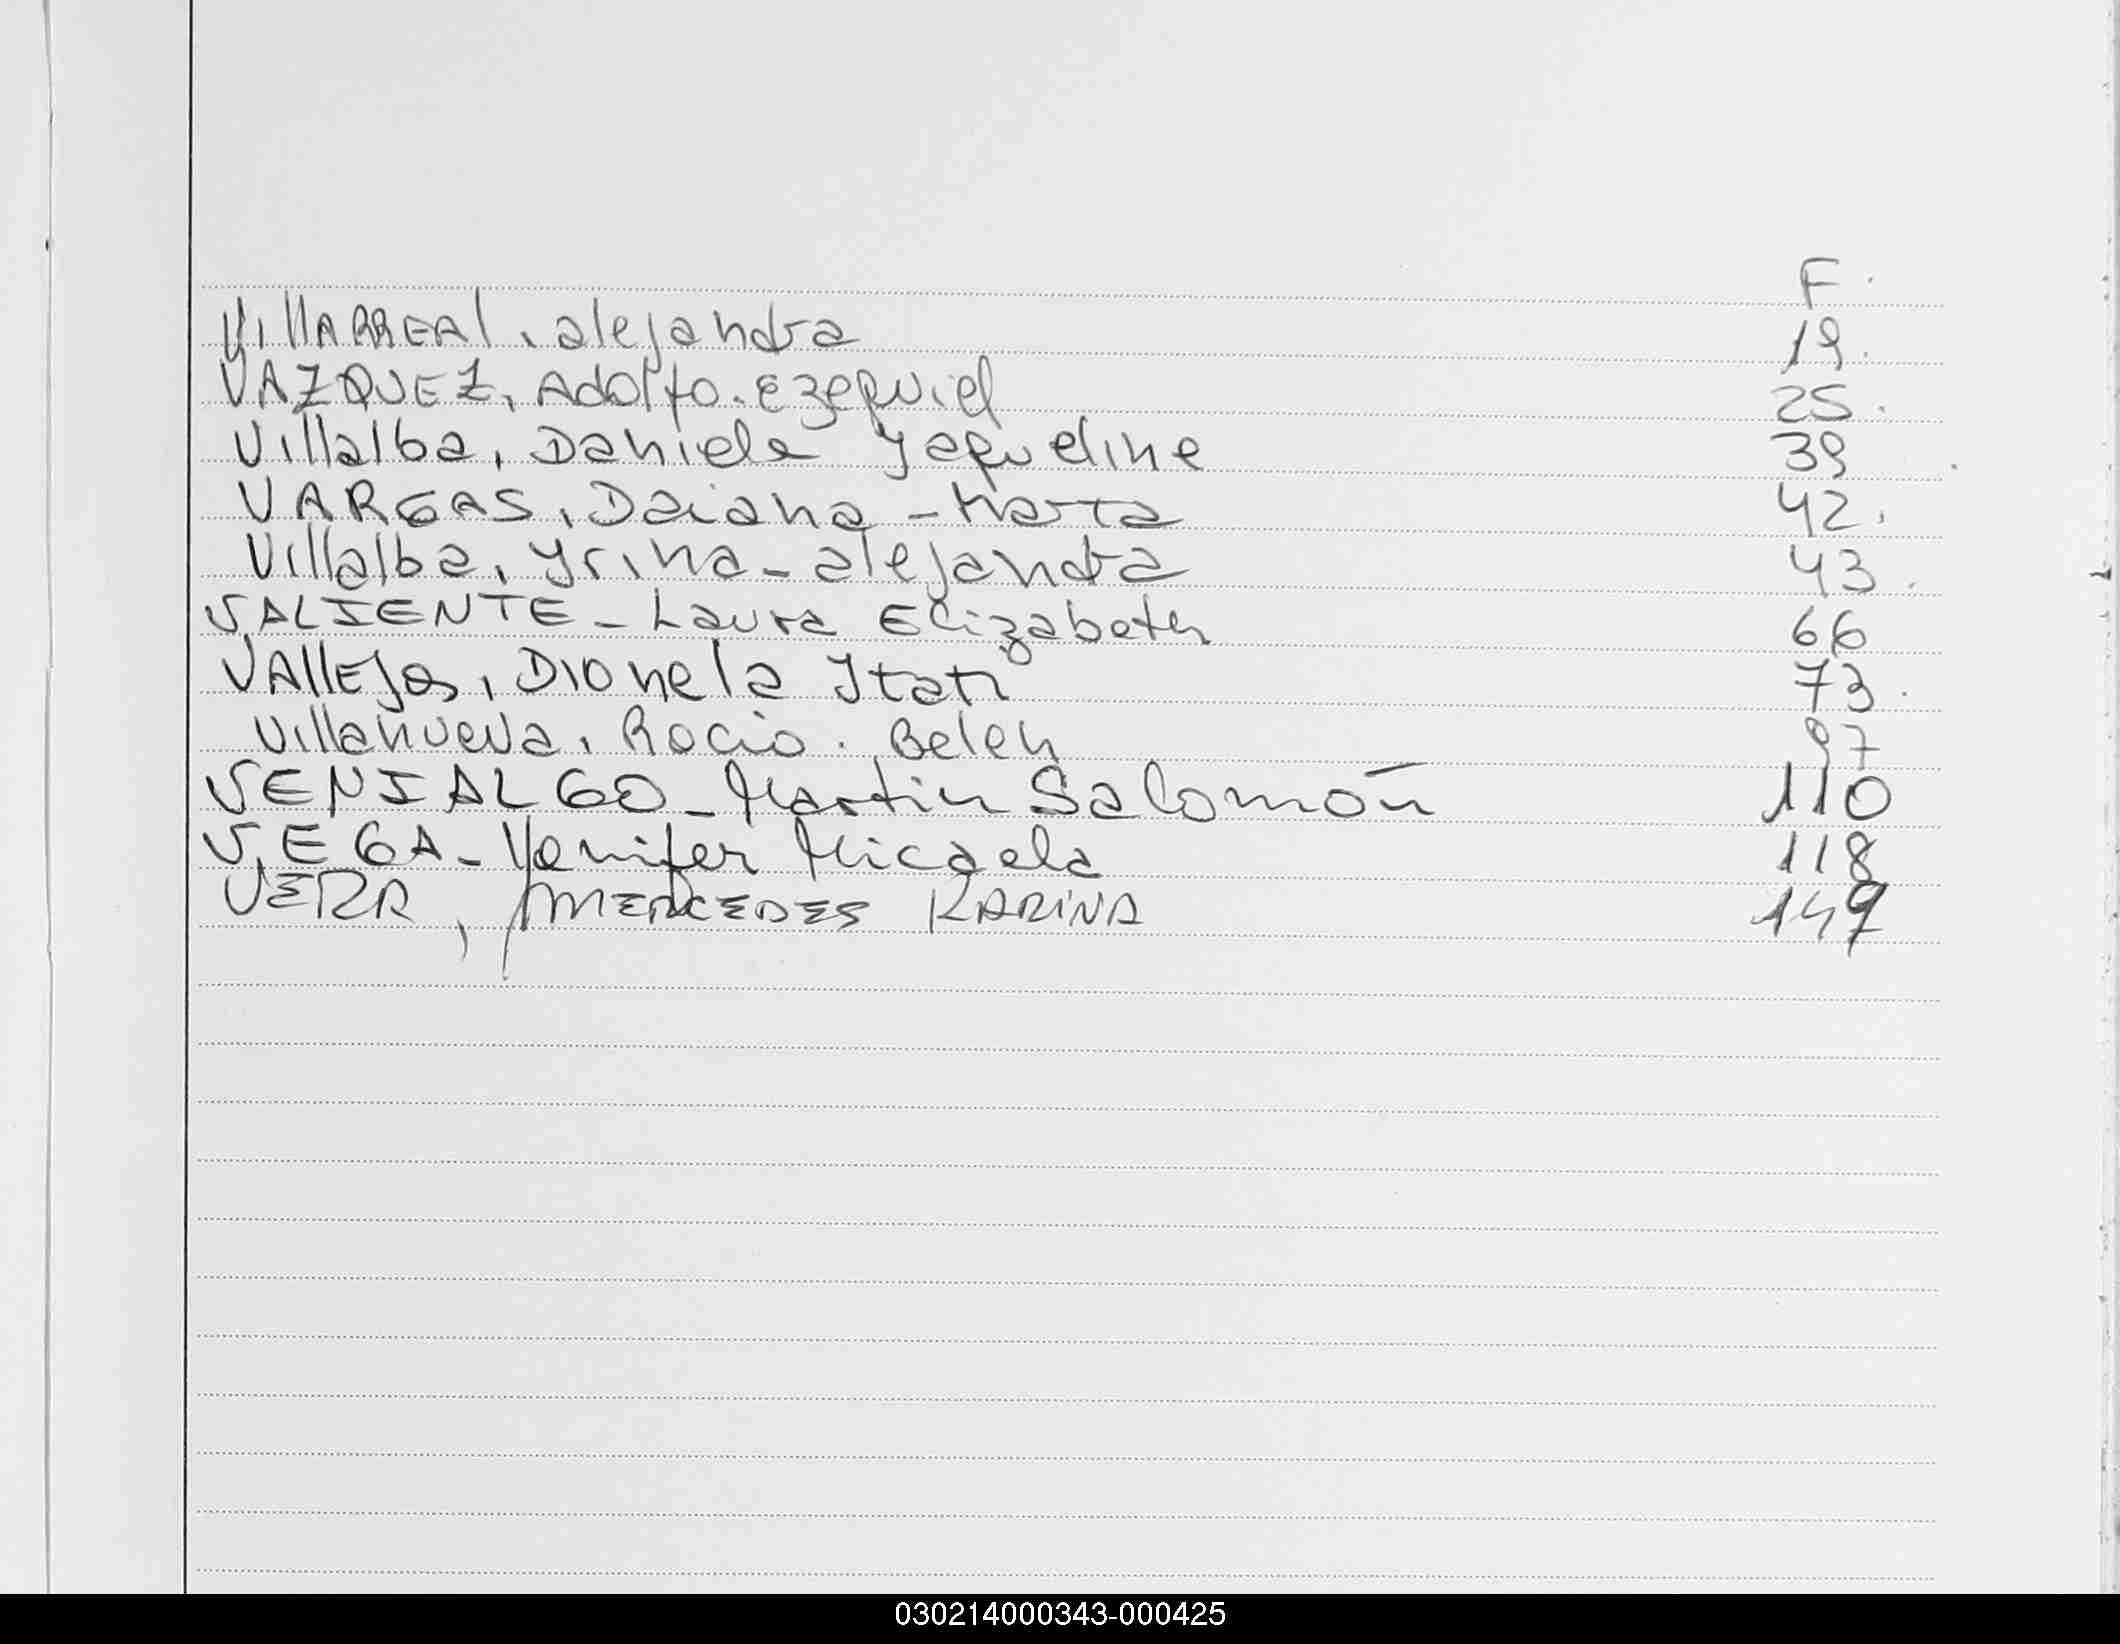 F.
Villarreal, alejandra 19.
VAZQUEZ, Adolfo. Ezequiel 25.
Villalba, Daniela Yaqueline 39
VARGAS, Daiana - Marta 42.
Villalba, Yrina - alejandra 43.
VALIENTE - Laura Elizabeth 66
VAllEJos, Dionela Itati 73.
Villanueva, Rocio. Belen 97
VENIALGO - Martin Salomón 110
VEGA - Yenifer Micaela 118
VERA, MERCEDES KARINA 149
030214000343-000425